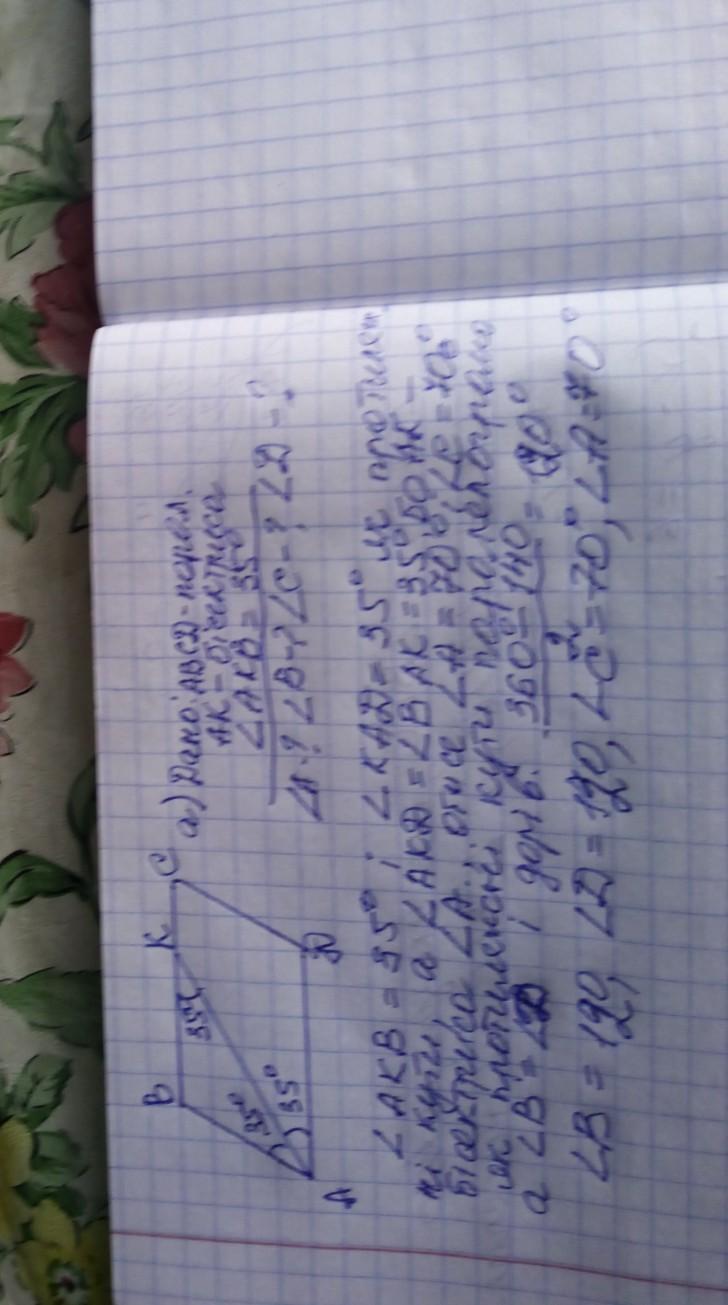 B K C
35°
35°
35°
A D
а) Дано: ABCD - парал.
AK - бісектриса
∠AKB = 35°
∠A-? ∠B-? ∠C-? ∠D-?
∠AKB = 35° і ∠KAD = 35° як протилеж
ні кути, а ∠AKD = ∠BAK = 35° бо AK -
бісектриса ∠A. і отже ∠A = 70° і ∠C = 70°
як протилежні кути паралелограма
а ∠B = ∠D і дорів. 360° - 140 / 2 =
∠B = ∠D = ∠C = 70°, ∠A = 70°